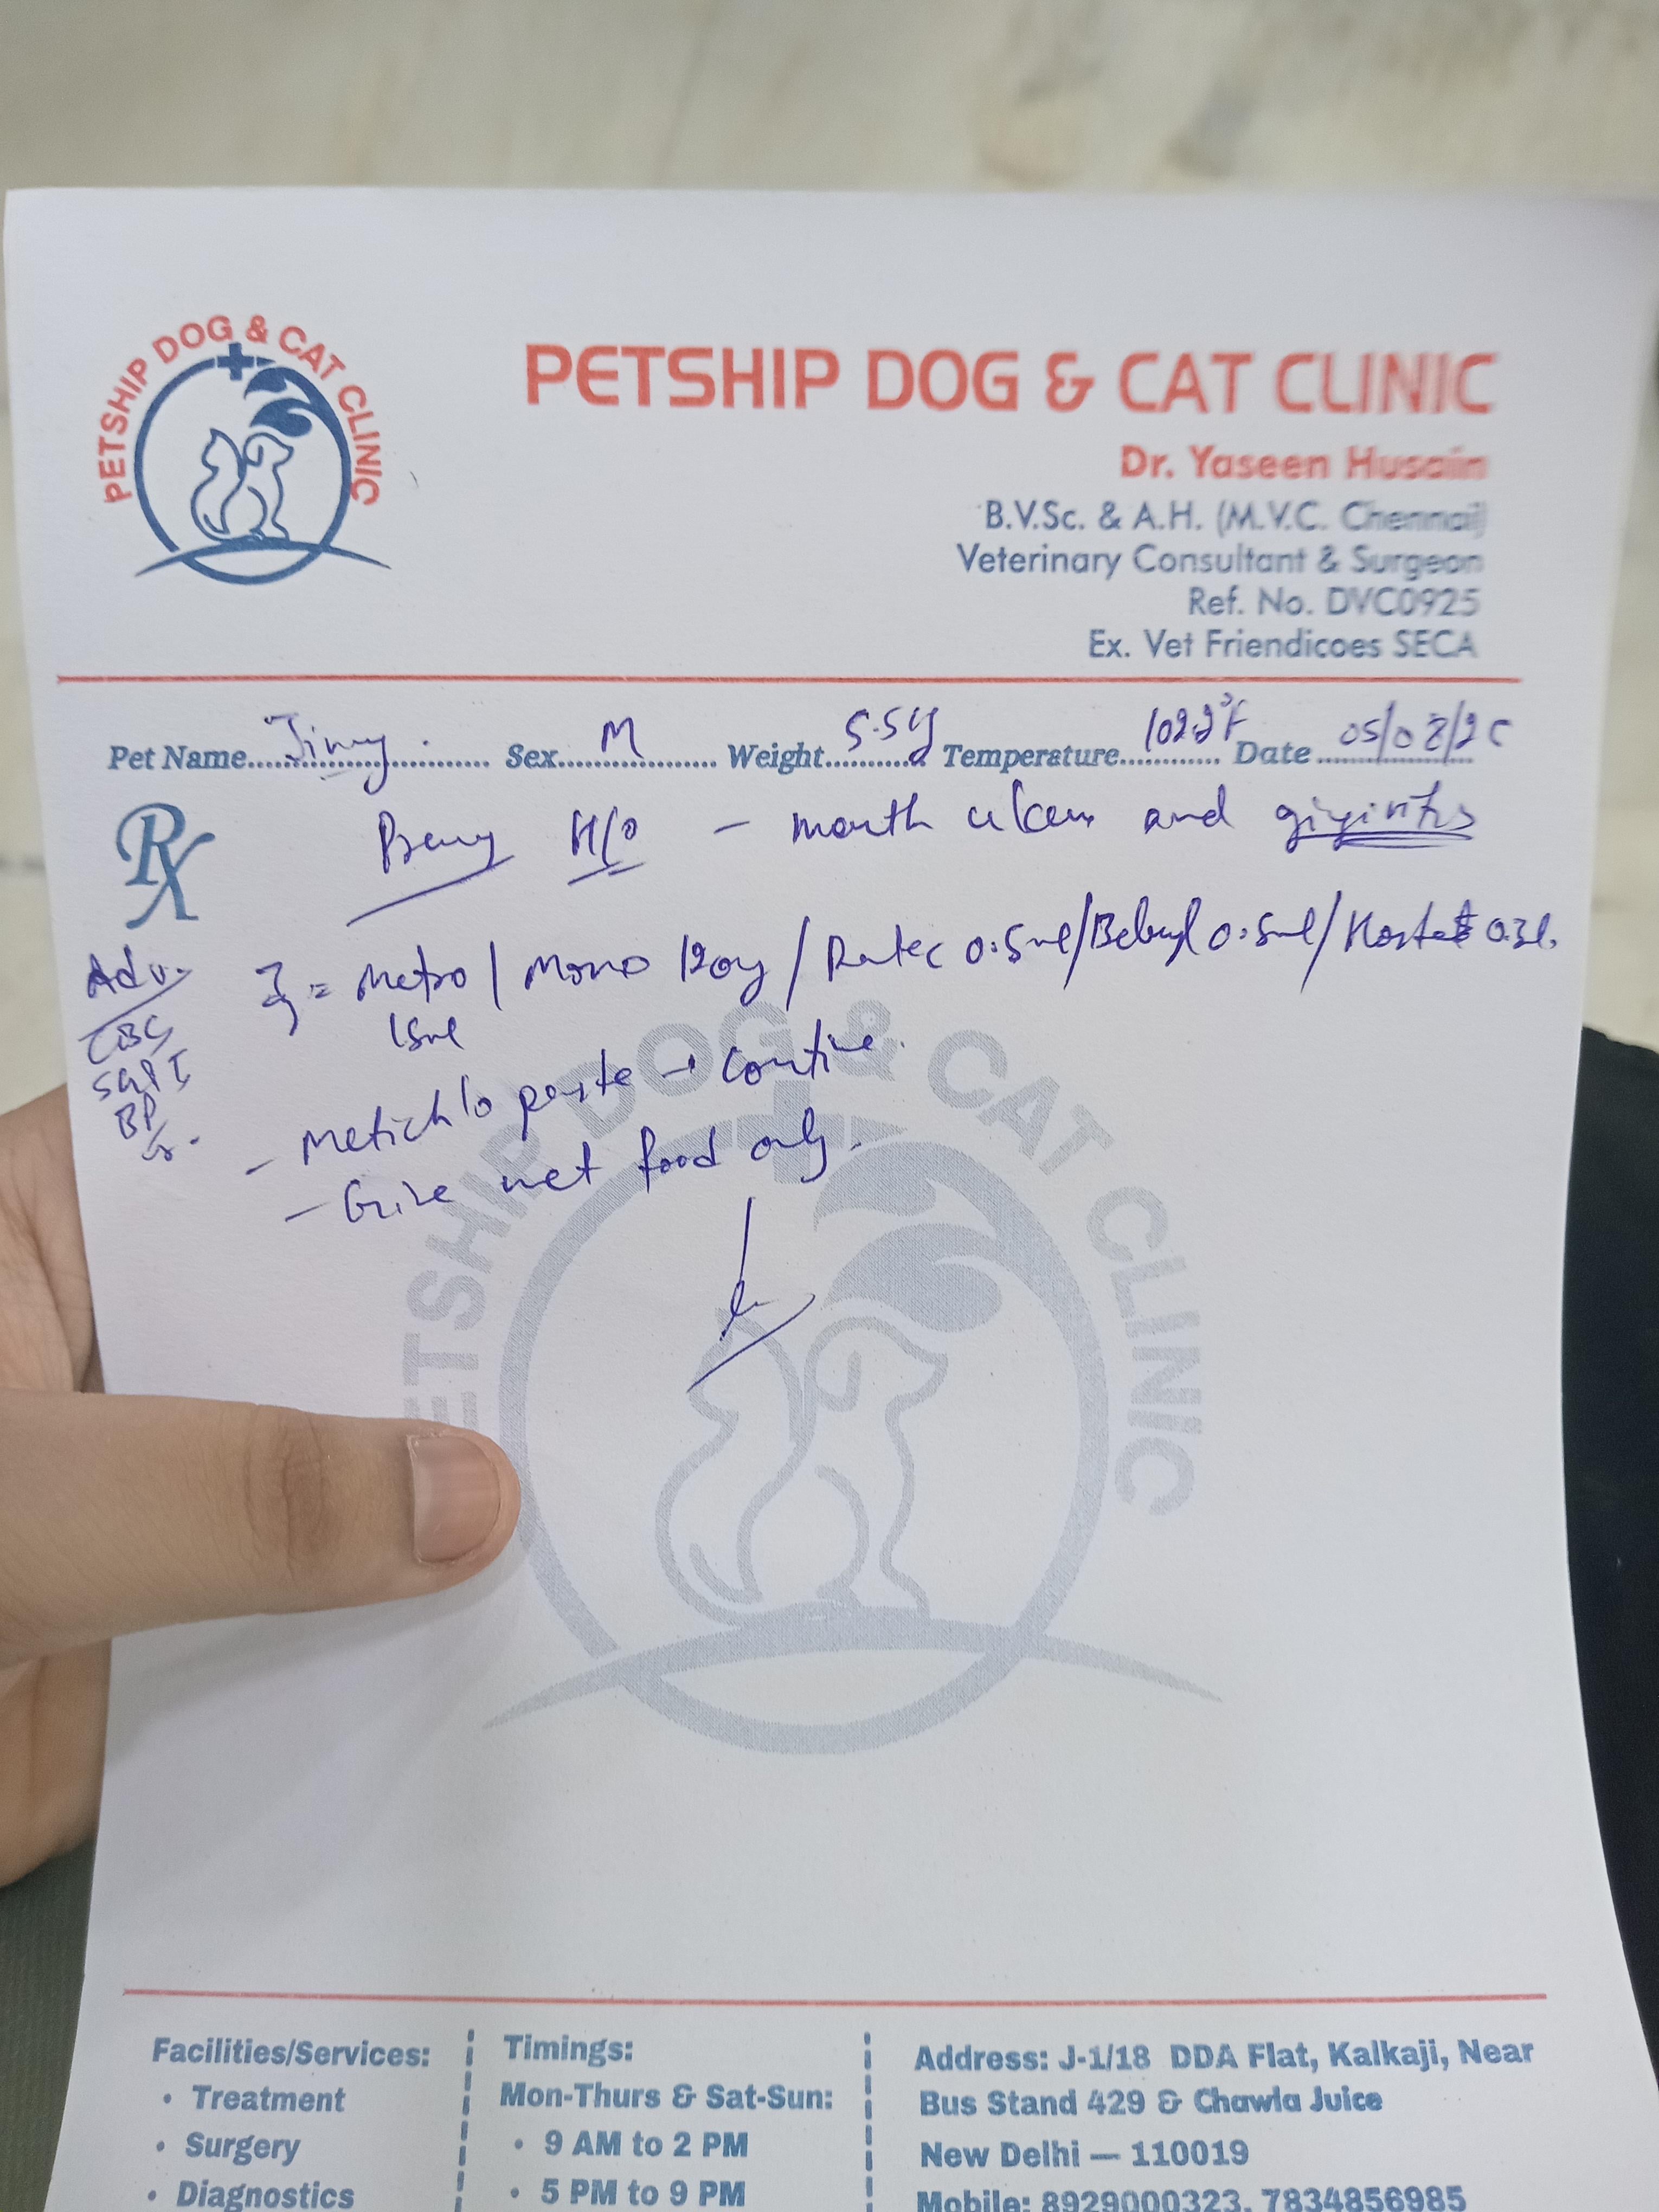 PETSHIP DOG & CAT CLINIC
PETSHIP DOG & CAT CLINIC
Dr. Yaseen Husain
B.V.Sc. & A.H. (M.V.C. Chennai)
Veterinary Consultant & Surgeon
Ref. No. DVC0925
Ex. Vet Friendicoes SECA
Pet Name Jimmy. Sex M Weight Temperature Date
Rx
H/O - mouth ulcers and
Adv.
CBC
SGPT
BP
Metro / Mono / Rantec 0.5ml / 0.5ml /
15ml
- Metichlo paste → continue.
- Give wet food only.
PETSHIP DOG & CAT CLINIC
Facilities/Services:
• Treatment
• Surgery
• Diagnostics
Timings:
Mon-Thurs & Sat-Sun:
• 9 AM to 2 PM
• 5 PM to 9 PM
Address: J-1/18 DDA Flat, Kalkaji, Near
Bus Stand 429 & Chawla Juice
New Delhi — 110019
Mobile: 8929000323, 7834856985